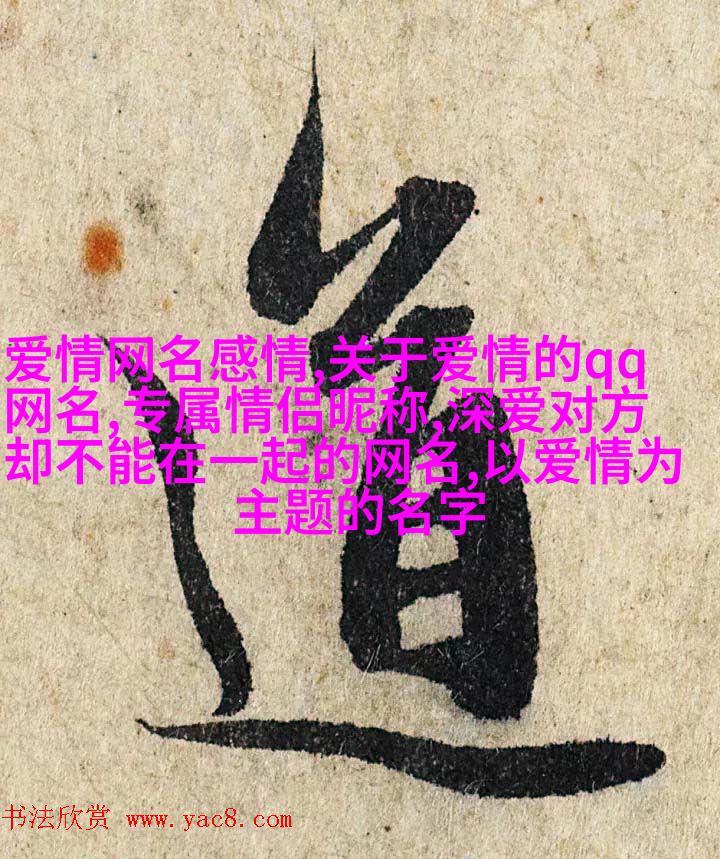 道
爱情网名感情,关于爱情的qq
网名,专属情侣昵称,深爱对方
却不能在一起的网名,以爱情为
主题的名字
书法欣赏 www.yac8.com